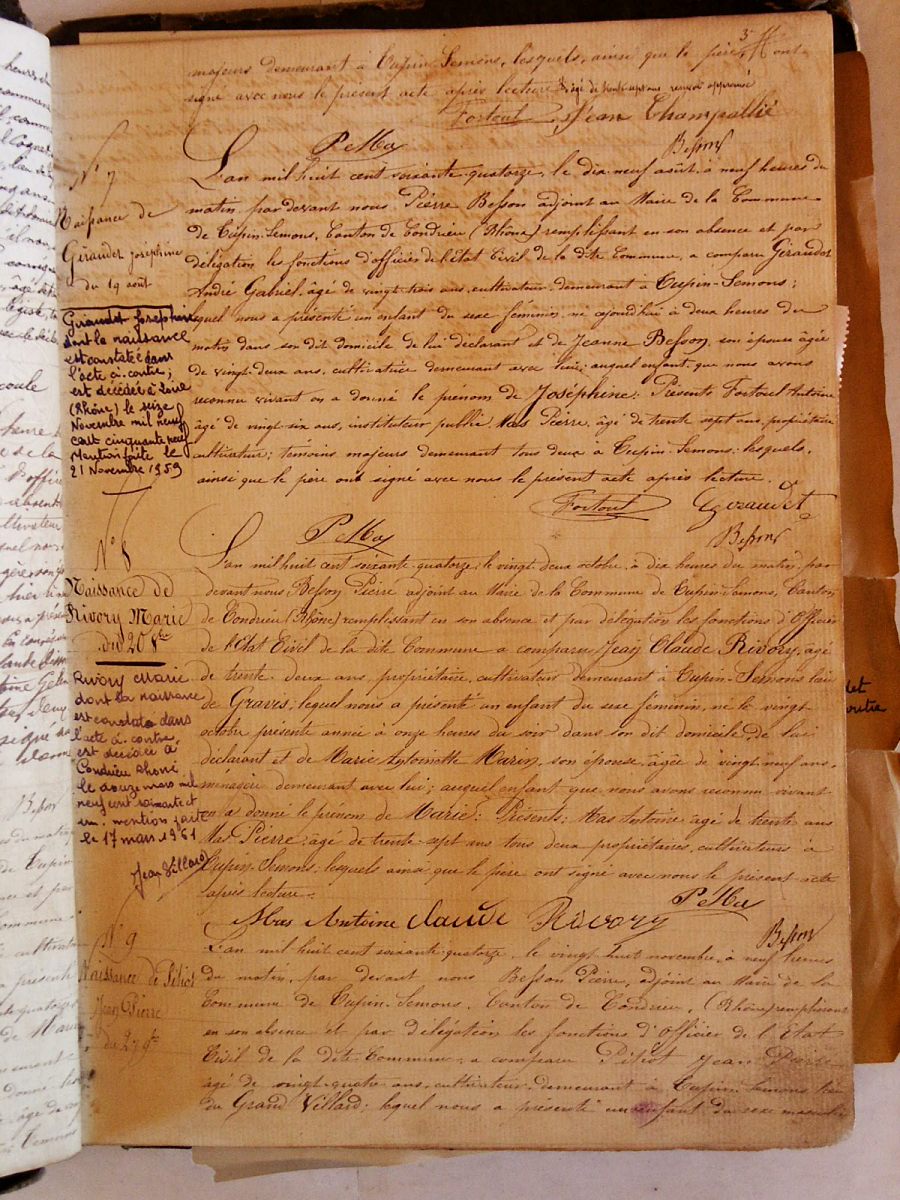 majeurs demeurant à Tupin-Semons, lesquels, ainsi que le père, ont
signé avec nous le présent acte après lecture
Fortoul Jean Champallié
P Mas
Besson
N° 7
Naissance de
Géraudet Joséphine
du 19 août
L'an mil huit cent soixante-quatorze, le dix-neuf août, à neuf heures du
matin, par devant nous Pierre Besson adjoint au Maire de la Commune
de Tupin-Semons, Canton de Condrieu (Rhône) remplissant en son absence et par
délégation les fonctions d'officier de l'état Civil de la dite Commune, a comparu Géraudet
André Gabriel, âgé de vingt-trois ans, cultivateur, demeurant à Tupin-Semons;
lequel nous a présenté un enfant du sexe féminin, né aujourd'hui à deux heures du
matin dans son dit domicile de lui déclarant et de Jeanne Besson, son épouse âgée
de vingt-deux ans, cultivatrice demeurant avec lui; auquel enfant, que nous avons
reconnu vivant on a donné le prénom de Joséphine: Présents Fortoul Antoine
âgé de vingt-six ans, instituteur public, Mas Pierre, âgé de trente sept ans, propriétaire
cultivateur; témoins majeurs demeurant tous deux à Tupin-Semons: lesquels,
ainsi que le père ont signé avec nous le présent acte après lecture.
Fortoul Géraudet
P Mas
Besson
Géraudet Joséphine
dont la naissance
est constatée dans
l'acte ci-contre,
est décédée à Loire
(Rhône) le seize
Novembre mil neuf
cent cinquante neuf
Mention faite le
21 Novembre 1959
N° 8
Naissance de
Rivory Marie
du 20 8bre
L'an mil huit cent soixante-quatorze, le vingt deux octobre, à dix heures du matin, par
devant nous Besson Pierre adjoint au Maire de la Commune de Tupin-Semons, Canton
de Condrieu (Rhône) remplissant en son absence et par délégation les fonctions d'Officier
de l'état Civil de la dite Commune a comparu Jean Claude Rivory, âgé
de trente-deux ans, propriétaire, cultivateur demeurant à Tupin-Semons lieu
de Graves; lequel nous a présenté un enfant du sexe féminin, né le vingt
octobre présente année à onze heures du soir dans son dit domicile, de lui
déclarant et de Marie Antoinette Marin, son épouse, âgée de vingt-neuf ans,
ménagère demeurant avec lui; auquel enfant que nous avons reconnu vivant
on a donné le prénom de Marie: Présents: Mas Antoine âgé de trente ans
Mas Pierre: âgé de trente-sept ans tous deux propriétaires, cultivateurs à
Tupin-Semons: lesquels ainsi que le père ont signé avec nous le présent acte
après lecture.
Mas Antoine Claude Rivory P Mas
Besson
Rivory Marie
dont la naissance
est constatée dans
l'acte ci-contre,
est décédée à
Condrieu Rhône
le douze mars mil
neuf cent soixante et
un. mention faite
le 17 mars 1961
Jean Villard
N° 9
Naissance de Pitiot
Jean Pierre
du 27 9bre
L'an mil huit cent soixante-quatorze, le vingt-huit novembre, à neuf heures
du matin, par devant nous Besson Pierre, adjoint au Maire de la
Commune de Tupin-Semons, Canton de Condrieu, (Rhône) remplissant
en son absence et par délégation les fonctions d'Officier de l'État
Civil de la dite Commune, a comparu Pitiot Jean Pierre
âgé de vingt-quatre ans, cultivateur, demeurant à Tupin-Semons lieu
du Grand Villard; lequel nous a présenté un enfant du sexe masculin